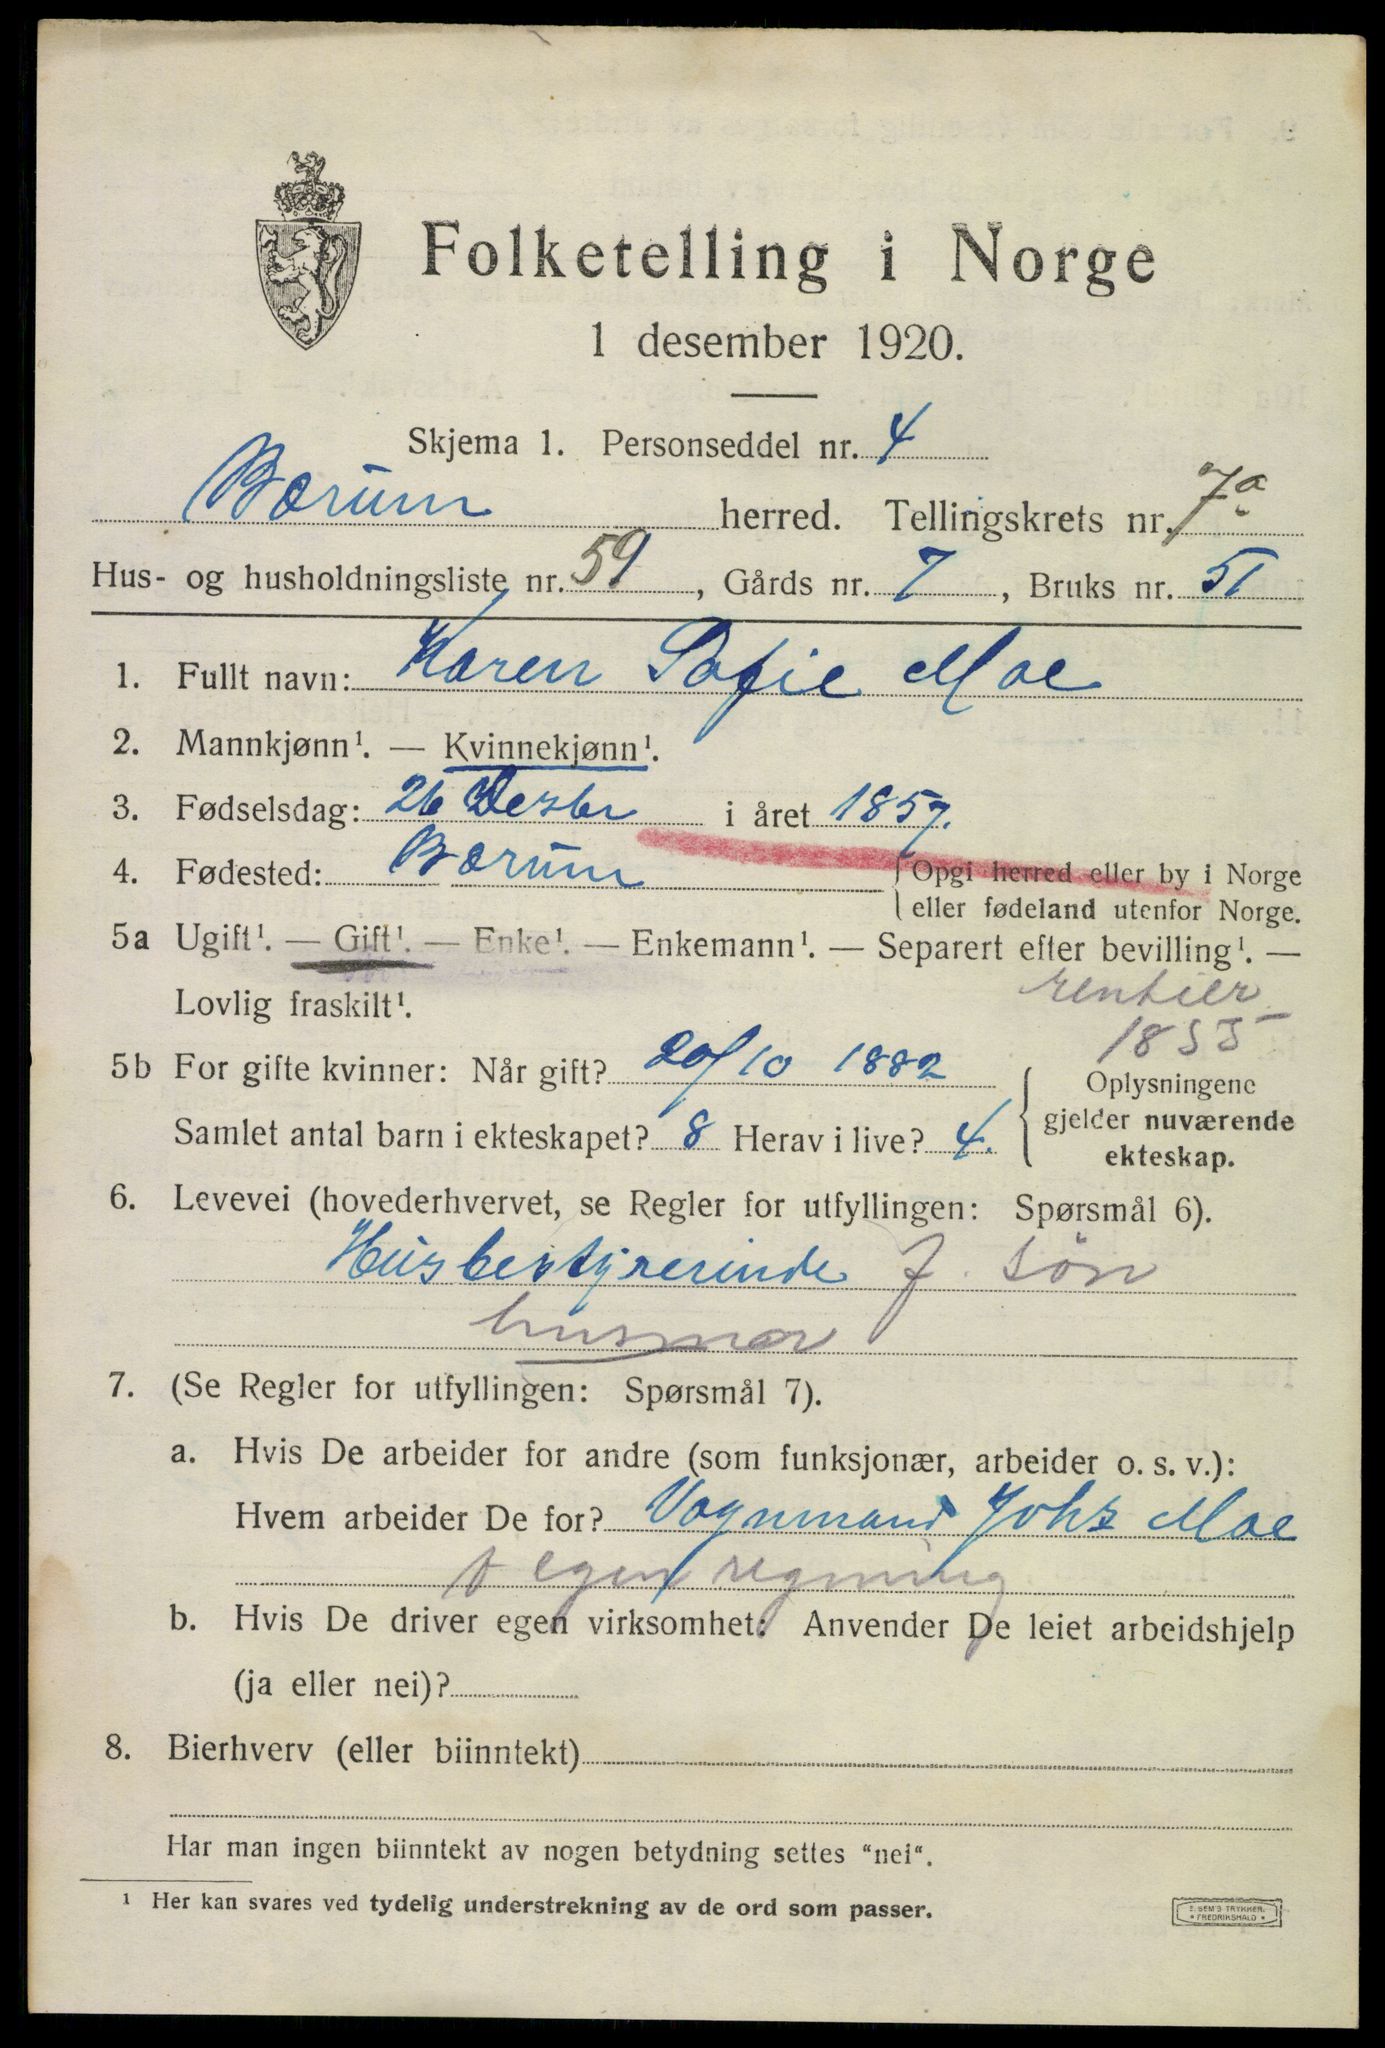 Folketelling i Norge
1 desember 1920.
Skjema 1. Personseddel nr. 4
Bærum herred. Tellingskrets nr. 7a
Hus- og husholdningsliste nr. 59, Gårds nr. 7, Bruks nr. 51
1. Fullt navn: Karen Sofie Moe
2. Mannkjønn¹. — Kvinnekjønn¹.
3. Fødselsdag: 26 Desbr i året 1857.
4. Fødested: Bærum {Opgi herred eller by i Norge
eller fødeland utenfor Norge.
5a Ugift¹. — Gift¹. — Enke¹. — Enkemann¹. — Separert efter bevilling¹. —
Lovlig fraskilt¹.
rentier
1855
5b For gifte kvinner: Når gift? 20/10 1882
Samlet antal barn i ekteskapet? 8 Herav i live? 4.
Oplysningene
gjelder nuværende
ekteskap.
6. Levevei (hovederhvervet, se Regler for utfyllingen: Spørsmål 6).
Husbestyrerinde f. søn
husmor
7. (Se Regler for utfyllingen: Spørsmål 7).
a. Hvis De arbeider for andre (som funksjonær, arbeider o. s. v.):
Hvem arbeider De for? Vognmand Johs Moe
egen regning
b. Hvis De driver egen virksomhet: Anvender De leiet arbeidshjelp
(ja eller nei)?
8. Bierhverv (eller biinntekt)
Har man ingen biinntekt av nogen betydning settes "nei".
¹ Her kan svares ved tydelig understrekning av de ord som passer.
E. SEM'S TRYKKERI
• FREDRIKSHALD •